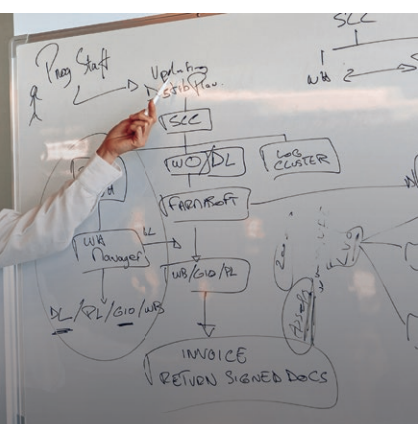 Prog Staff
Updating
SCC
SCC
WH
WO/DL
LOG
CLUSTER
FARMASOFT
WH
Manager
LL
WB/GIO/PL
DL/PL/GIO/WB
INVOICE
RETURN SIGNED DOCS